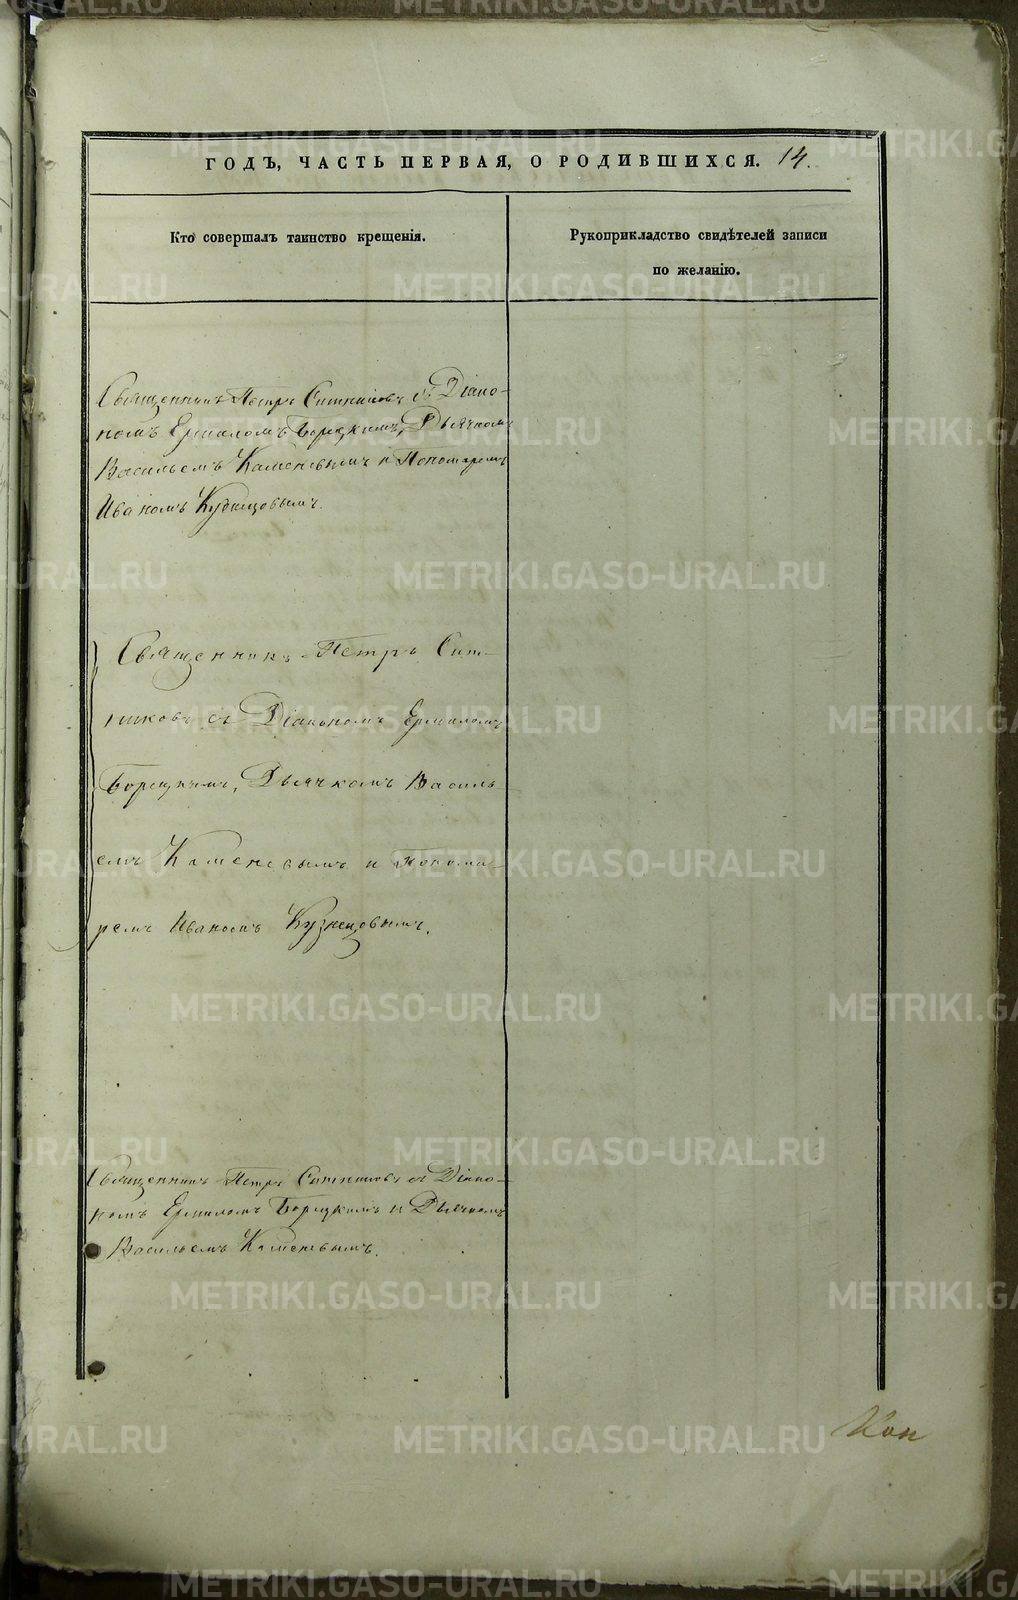 ГОДЪ, ЧАСТЬ ПЕРВАЯ, О РОДИВШИХСЯ. 14.
Кто совершалъ таинство крещенія.
Рукоприкладство свидѣтелей записи
по желанію.
Священникъ Петръ Ситниковъ съ Діако-
номъ Ермиломъ Борецкимъ, Дьячкомъ
Васильемъ Каменевымъ и Пономаремъ
Иваномъ Кузнецовымъ.
Священникъ Петръ Сит-
никовъ съ Діакономъ Ермиломъ
Борецкимъ, Дьячкомъ Василь
емъ Каменевымъ и Понома-
ремъ Иваномъ Кузнецовымъ.
Священникъ Петръ Ситниковъ съ Діако-
номъ Ермиломъ Борецкимъ и Дьячкомъ
Васильемъ Каменевымъ.
METRIKI.GASO-URAL.RU